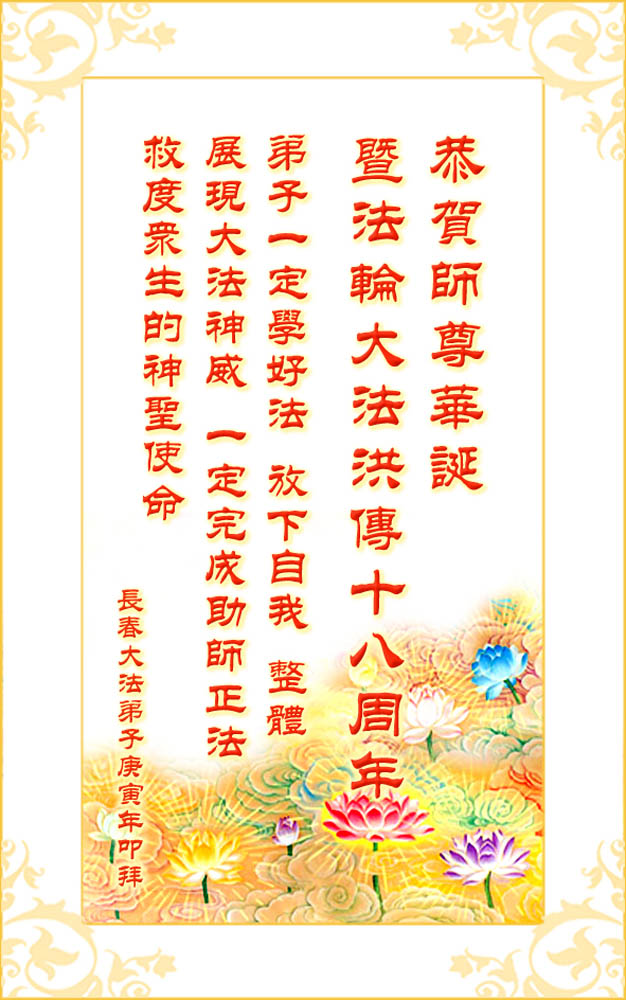 恭賀師尊華誕
暨法輪大法洪傳十八周年
弟子一定學好法 放下自我 整體
展現大法神威 一定完成助師正法
救度眾生的神聖使命
長春大法弟子庚寅年叩拜